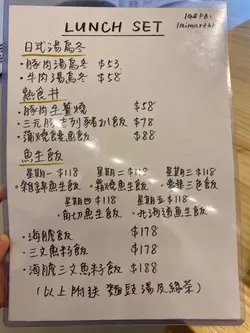 LUNCH SET
日式湯烏冬
・豚肉湯烏冬 $53
・牛肉湯烏冬 $58
熟食丼
・豚肉生薑燒 $58
・三元豚吉列豬扒飯 $78
・蒲燒鰻魚飯 $88
魚生飯
星期一 $118 星期二 $118 星期三 $118
・雜錦魚生飯 魚生飯
星期四 $118 星期五 $118
・角切魚生飯 ・北海道魚生飯
・海膽飯 $178
・三文魚籽飯 $178
・海膽三文魚籽飯 $188
(以上附送麵豉湯及綠茶)